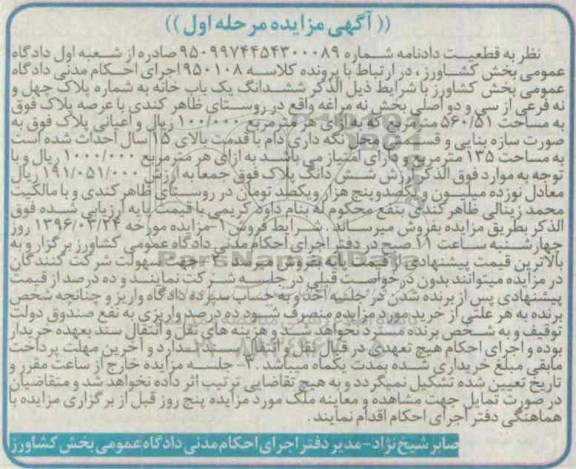 (( آگهی مزایده مرحله اول ))
نظر به قطعیت دادنامه شماره ۹۵۰۹۹۷۴۴۵۴۳۰۰۰۸۹ صادره از شعبه اول دادگاه
عمومی بخش کشاورز ، در ارتباط با پرونده کلاسه ۹۵۰۱۰۸ اجرای احکام مدنی دادگاه
عمومی بخش کشاورز با شرایط ذیل الذکر ششدانگ یک باب خانه به شماره پلاک چهل و
نه فرعی از سی و دو اصلی بخش نه مراغه واقع در روستای ظاهر کندی با عرصه پلاک فوق
به مساحت ۵۶۰/۵۱ مترمربع که به ازای هر مترمربع ۱۰۰/۰۰۰ ریال و اعیانی پلاک فوق به
صورت سازه بنایی و قسمت محل نگه داری دام با قدمت بالای ۱۵ سال احداث شده است
به مساحت ۱۳۵ مترمربع و دارای امتیاز می باشد به ازای هر مترمربع ۱۰۰۰/۰۰۰ ریال و با
توجه به موارد فوق الذکر ارزش شش دانگ پلاک فوق جمعا به ارزش ۱۹۱/۰۵۱/۰۰۰ ریال
معادل نوزده میلیون و یکصدوپنج هزار ویکصد تومان در روستای ظاهر کندی و با مالکیت
محمد زینالی ظاهر کندی بنفع محکوم له بنام داود کریمی با قیمت پایه ارزیابی شده فوق
الذکر بطریق مزایده بفروش میرساند . شرایط فروش ۱- مزایده مورخه ۱۳۹۶/۰۳/۲۴ روز
چهارشنبه ساعت ۱۱ صبح در دفتر اجرای احکام مدنی دادگاه عمومی کشاورز برگزار و به
بالاترین قیمت پیشنهادی از قیمت پایه بفروش میرسد ۲- جهت سهولت شرکت کنندگان
در مزایده میتوانند بدون درخواست قبلی در جلسه شرکت نمایند و ده درصد از قیمت
پیشنهادی پس از برنده شدن در جلسه اخذ و به حساب سپرده دادگاه واریز و چنانچه شخص
برنده به هر علتی از خرید مورد مزایده منصرف شود ده درصد واریزی به نفع صندوق دولت
توقیف و به شخص برنده مسترد نخواهد شد و هزینه های نقل و انتقال سند بعهده خریدار
بوده و اجرای احکام هیچ تعهدی در قبال نقل و انتقال سند ندارد و آخرین مهلت پرداخت
مابقی مبلغ خریداری شده بمدت یکماه میباشد . ۳- جلسه مزایده خارج از ساعت مقرر و
تاریخ تعیین شده تشکیل نمیگردد و به هیچ تقاضایی ترتیب اثر داده نخواهد شد و متقاضیان
در صورت تمایل جهت مشاهده و معاینه ملک مورد مزایده پنج روز قبل از برگزاری مزایده با
هماهنگی دفتر اجرای احکام اقدام نمایند .
صابر شیخ نژاد - مدیر دفتر اجرای احکام مدنی دادگاه عمومی بخش کشاورز
ParsNamadData